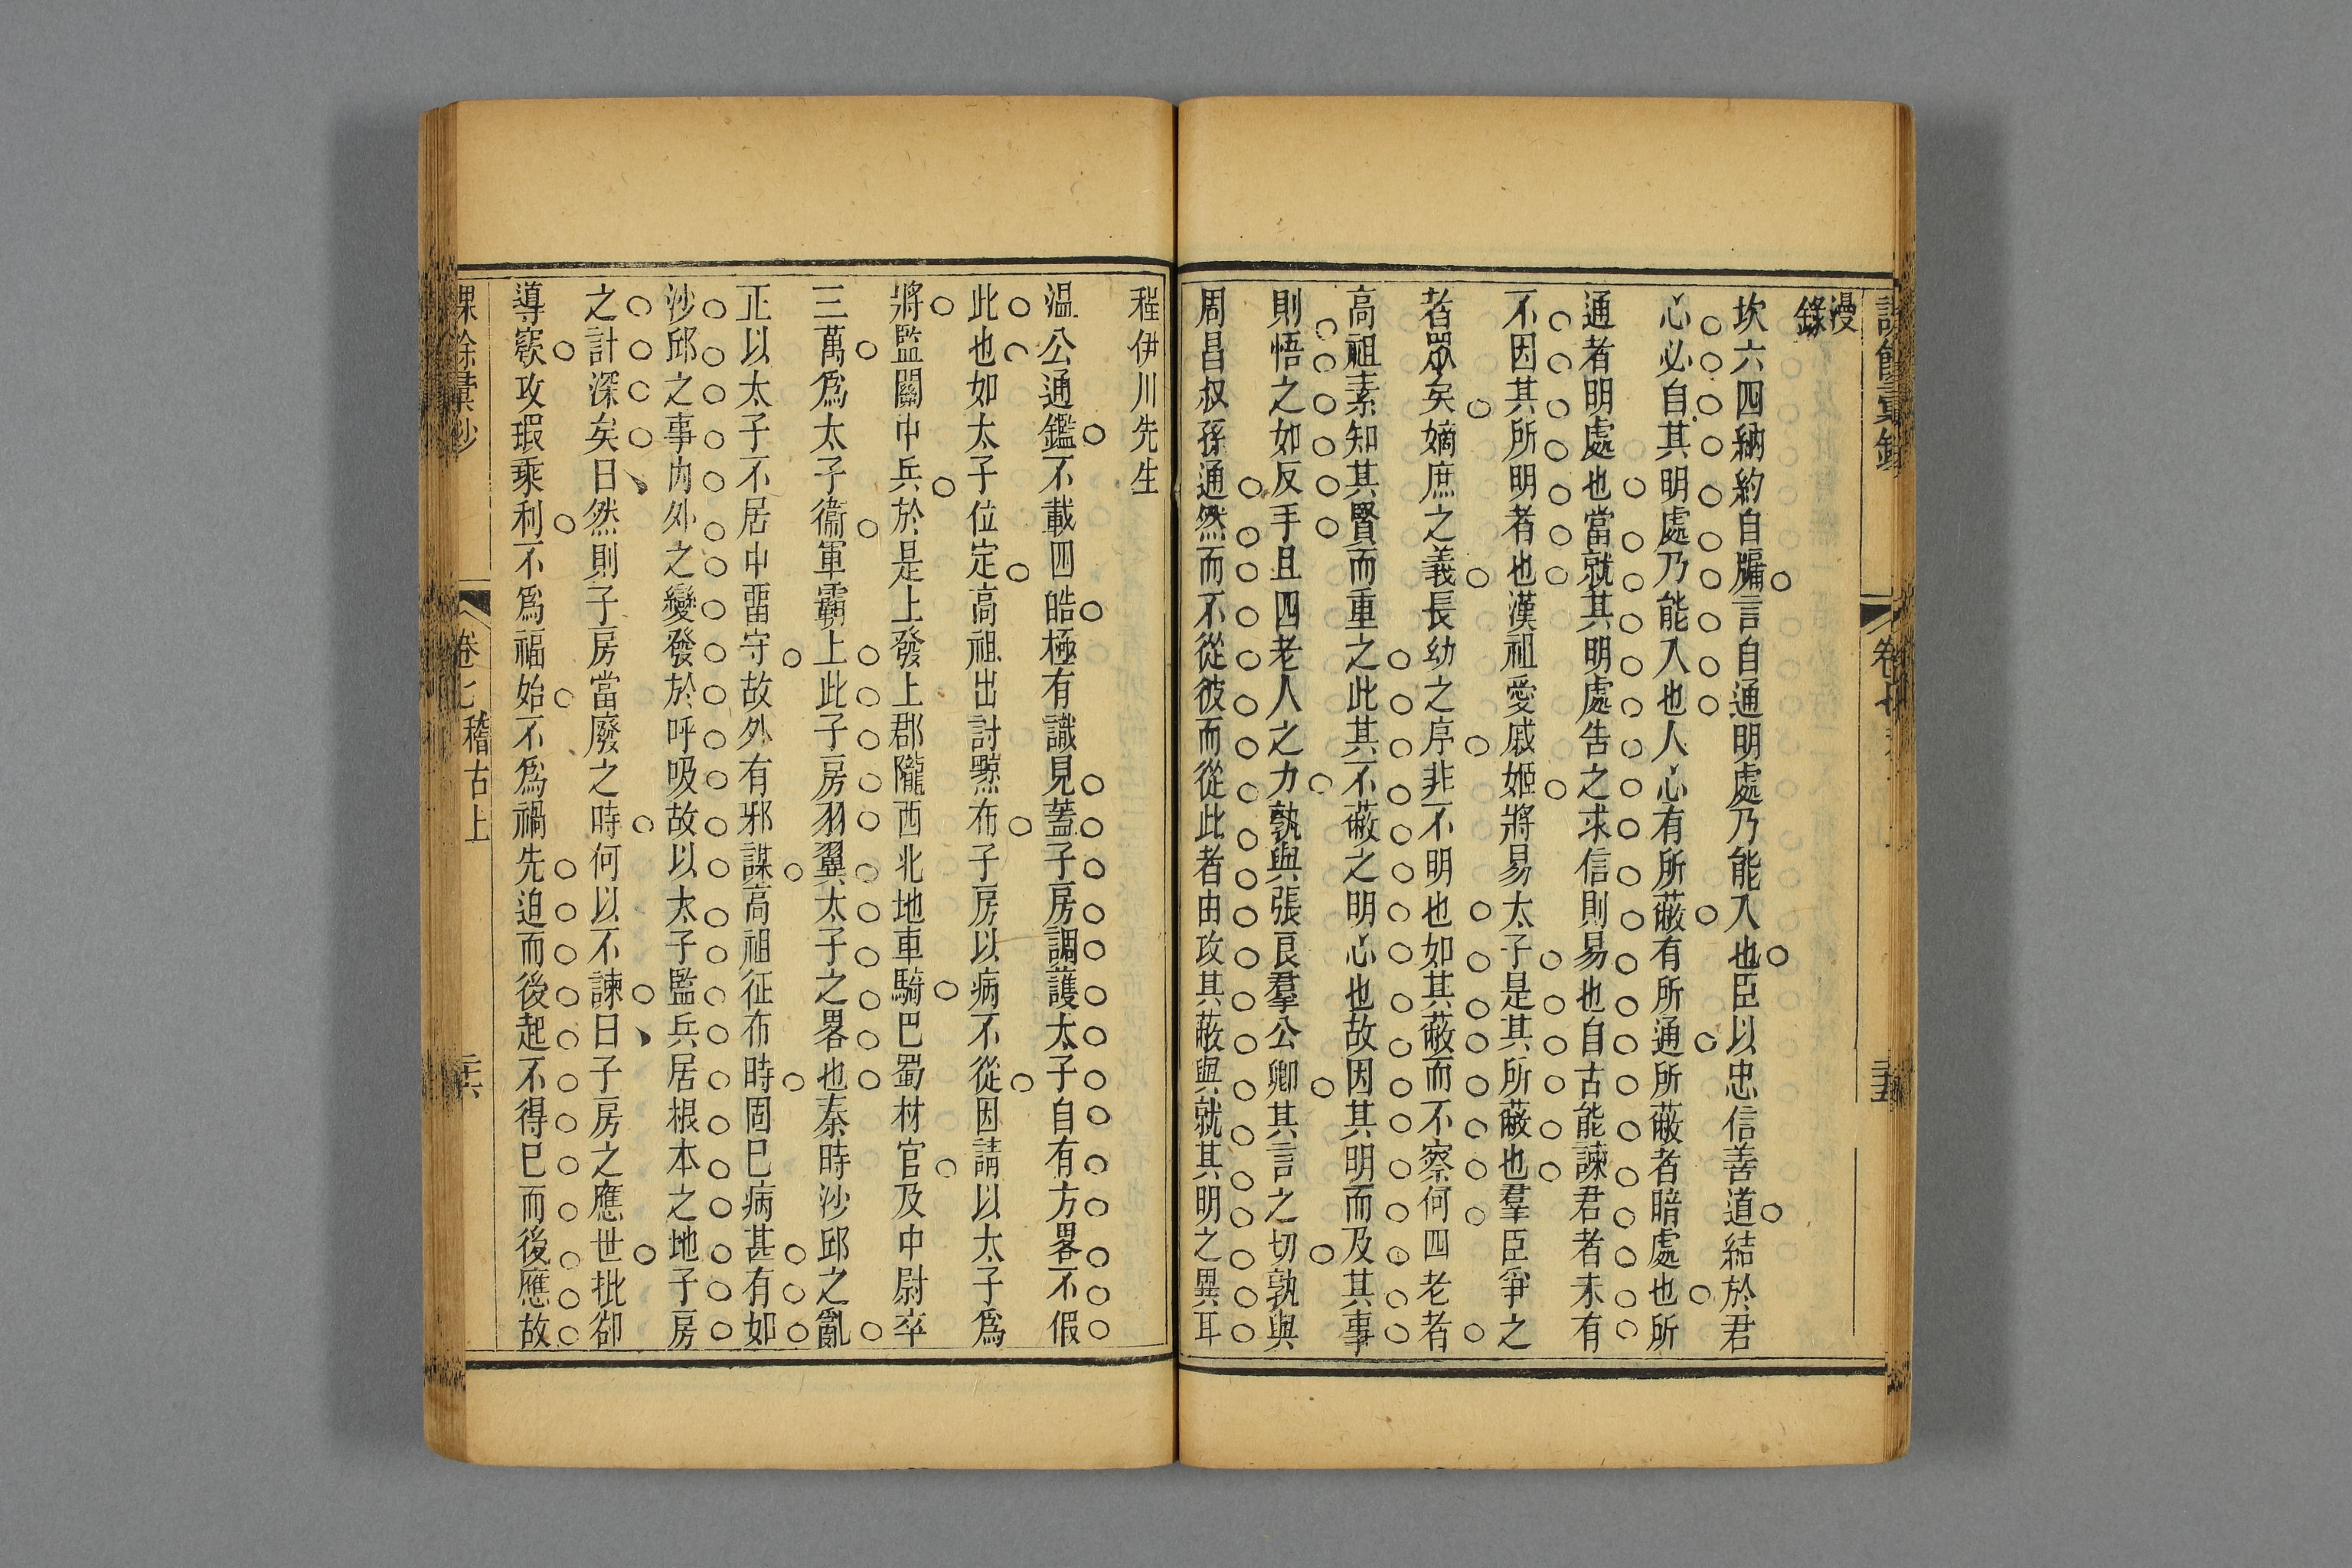 漫
錄
坎六四納約自牖言自通明處乃能入也臣以忠信善道結於君
心必自其明處乃能入也人心有所蔽有所通所蔽者暗處也所
通者明處也當就其明處告之求信則易也自古能諫君者未有
不因其所明者也漢祖愛戚姬將易太子是其所蔽也羣臣爭之
者眾矣嫡庶之義長幼之序非不明也如其蔽而不察何四老者
高祖素知其賢而重之此其不蔽之明心也故因其明而及其事
則悟之如反手且四老人之力孰與張良羣公卿其言之切孰與
周昌叔孫通然而不從彼而從此者由攻其蔽與就其明之異耳
程伊川先生
溫公通鑑不載四皓極有識見蓋子房調護太子自有方畧不假
此也如太子位定高祖出討黥布子房以病不從因請以太子爲
將監關中兵於是上發上郡隴西北地車騎巴蜀材官及中尉卒
三萬爲太子衞軍霸上此子房羽翼太子之畧也秦時沙邱之亂
正以太子不居中畱守故外有邪謀高祖征布時固已病甚有如
沙邱之事內外之變發於呼吸故以太子監兵居根本之地子房
之計深矣曰然則子房當廢之時何以不諫曰子房之應世批郤
導窾攻瑕乘利不爲福始不爲禍先迫而後起不得已而後應故
課餘彙鈔
卷七 稽古上
三六